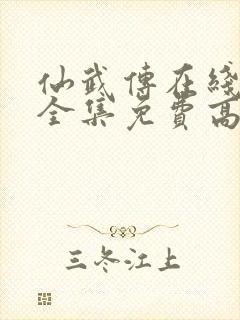 仙武傳在綫
全集免費高
三冬江上